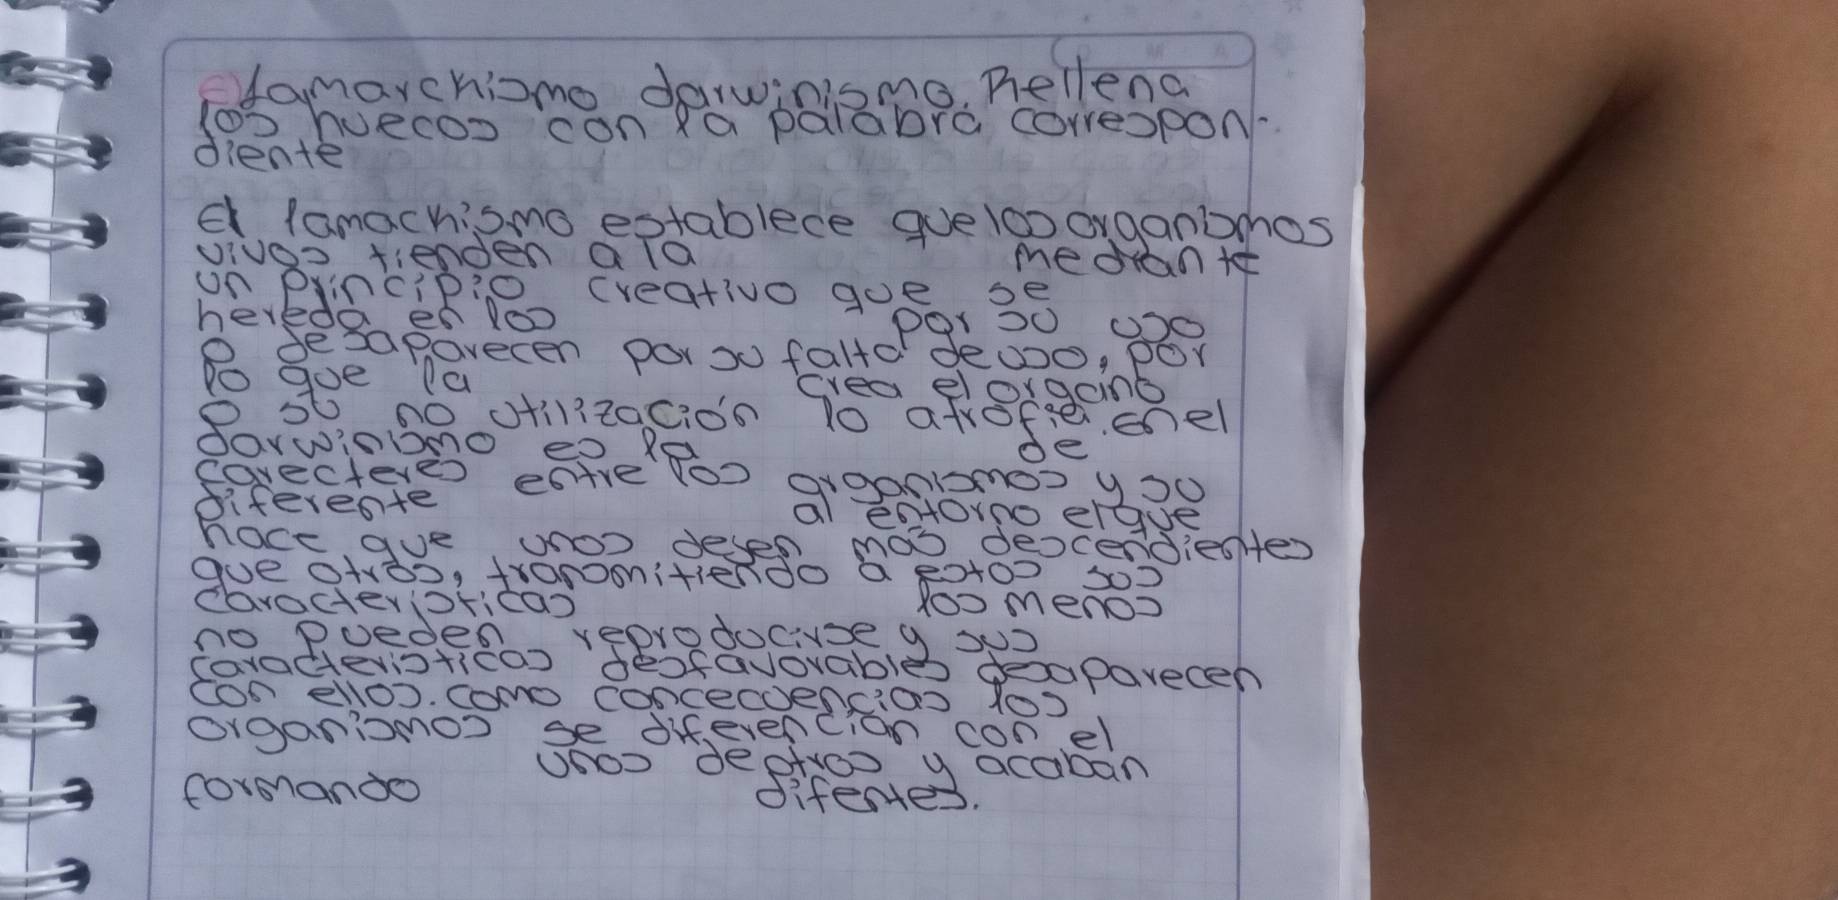 Lamarchismo darwinismo. Rellena
los huecos con la palabra correspon-
diente
El lamachismo establece que los organismos
vivos tienden a la mediante
un principio creativo que se
hereda en los por su uso
o desaparecen por su falta de uso, por
lo que la crea el organo
o su no utilización lo atrofia. en el
darwinismo es la de
carecteres entre los organismos y su
diferente al entorno el que
hace que unos dejen mas descendientes
que otros, transmitiendo a estos sus
caracteristicas los menos
no pueden reproducirse y sus
caracteristicas desfavorables desaparecen
con ellos. como concecuencias los
organismos se diferencian con el
unos deotros y acaban
formando difentes.